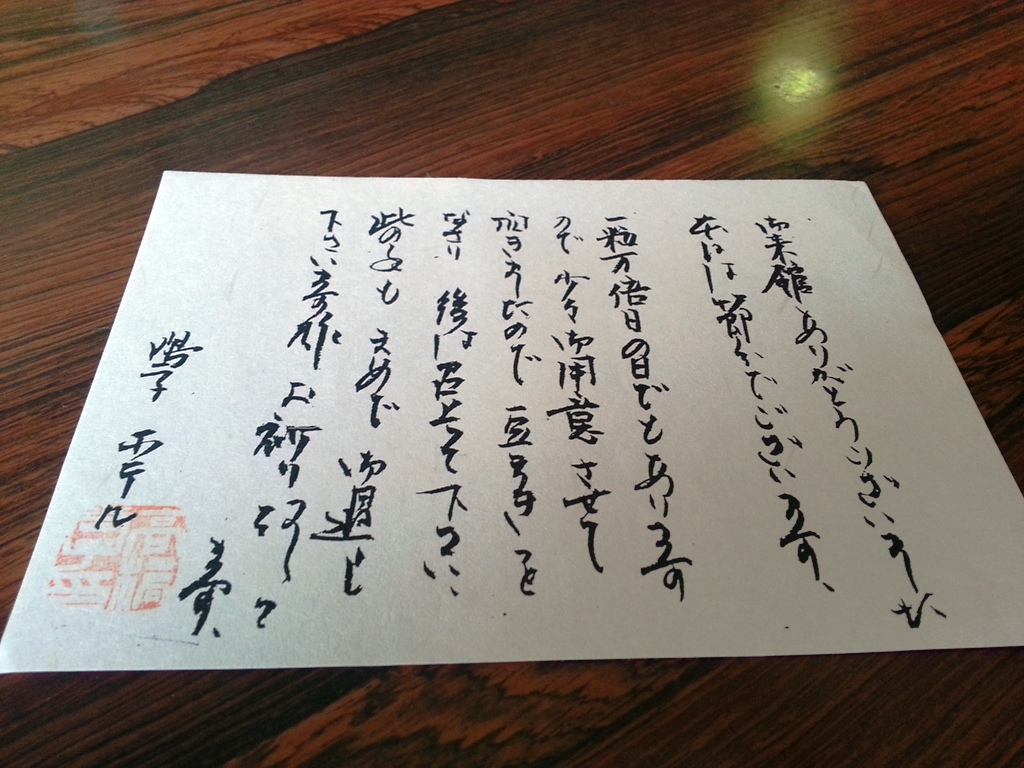 御来館ありがとうございました
本日は節分でございます、
一粒万倍日の日でもあります
ので少々御用意させて
頂きましたので豆まきを
なさり 後は召上って下さい、
此の冬も まめで 御過し
下さいます様 お祈り致して
ます、
鳴子 ホテル